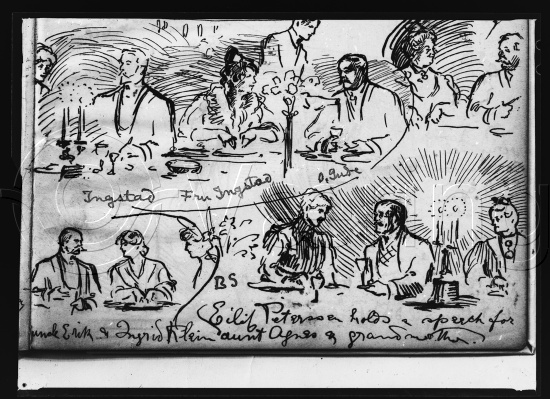 Ingstad Fru Ingstad O. Gude
BS
Eilif Peterssen holds a speech for
uncle Erik & Ingrid Klein aunt Agnes & grandmother.